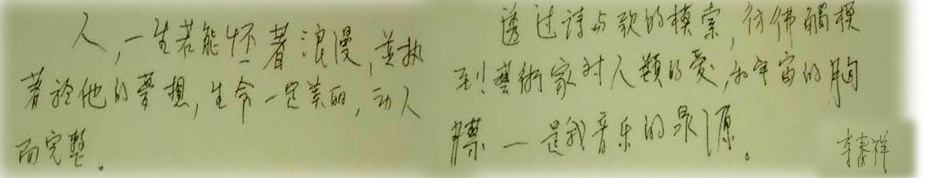 人,一生若能怀着浪漫,並执
著於他的夢想,生命一定美的,动人
而完整。
透过诗与歌的摸索,彷彿觸摸
到藝術家对人類的愛,和宇宙的胸
膘一是我音乐的泉源。
李泰祥